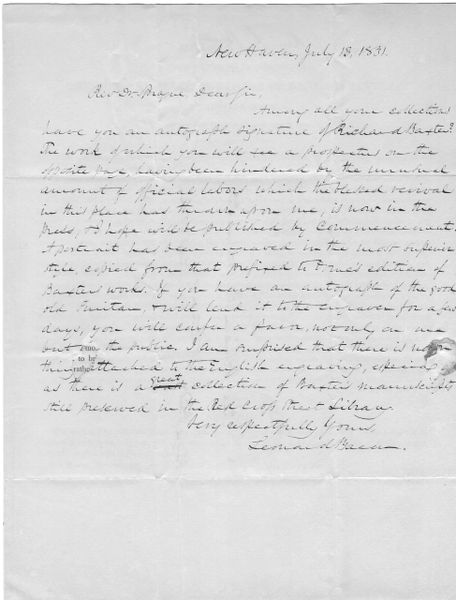 New Haven, July 13, 1831.
Rev. Dr. Sprague Dear Sir,
Among all your collections
have you an autograph signature of Richard Baxter?
The work of which you will see a prospectus on the
opposite page, having been hindered by the unusual
amount of official labors which the blessed revival
in this place has thrown upon me, is now in the
press, & I hope will be published by Commencement.
A portrait has been engraved in the most superior
style, copied from that prefixed to Orme's edition of
Baxter's works. If you have an autograph of the good
old Puritan, & will lend it to the engraver for a few
days, you will confer a favor, not only on me
but on the public. I am surprised that there is no
thing attached to the English engraving, especially
as there is a great collection of Baxter's manuscripts
still preserved in the Red Cross Street Library.
Very respectfully Yours,
Leonard Bacon.
to be
rathe